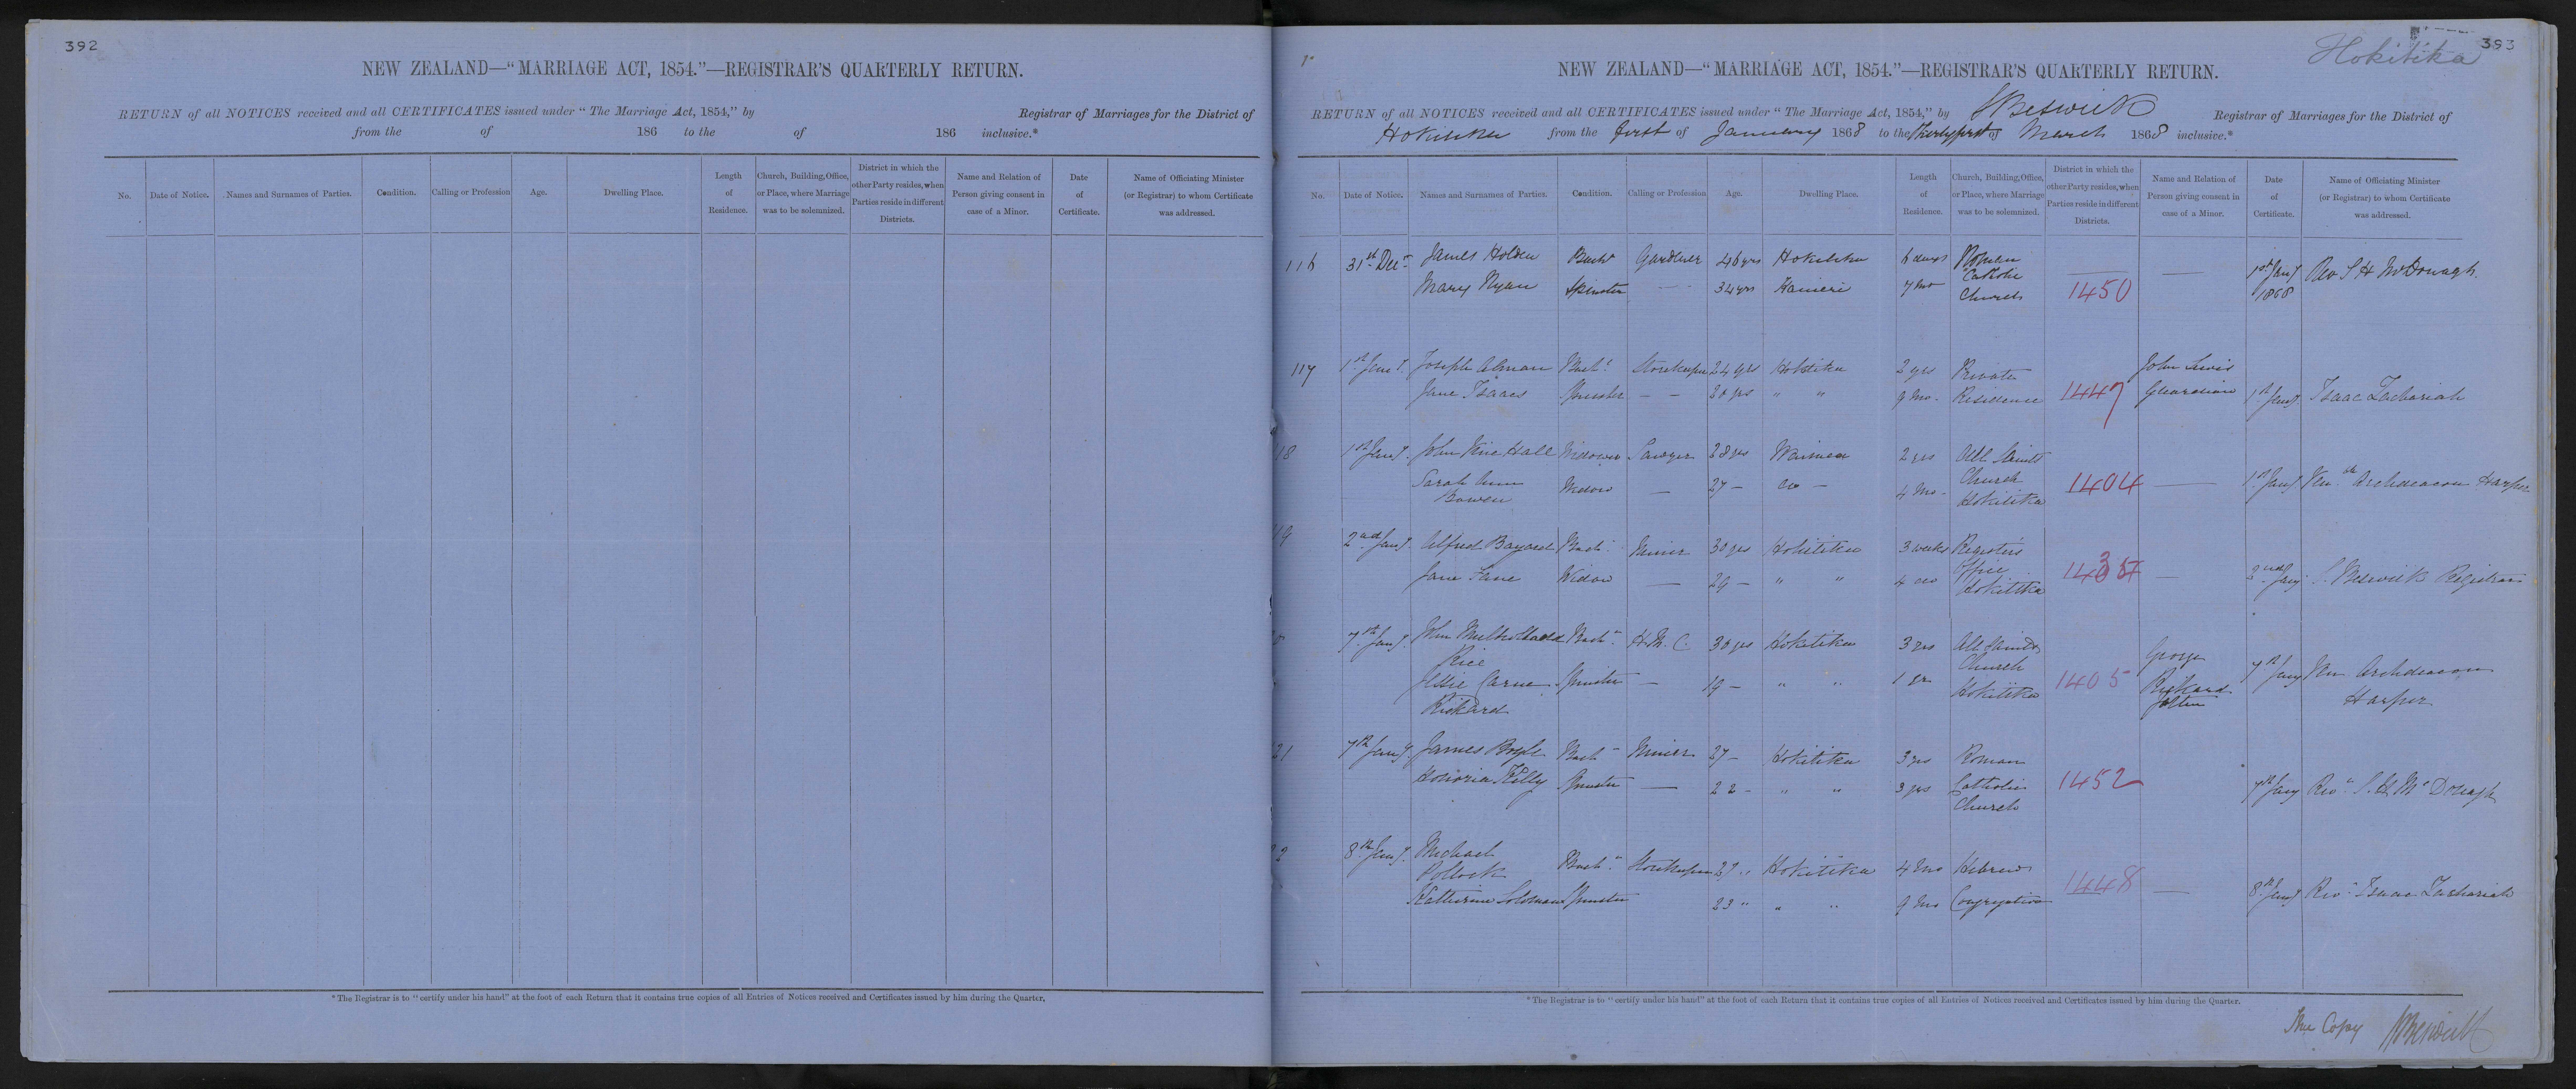 392
NEW ZEALAND—“MARRIAGE ACT, 1854.”—REGISTRAR'S QUARTERLY RETURN.
RETURN of all NOTICES received and all CERTIFICATES issued under “The Marriage Act, 1854,” by Registrar of Marriages for the District of
from the of 186 to the of 186 inclusive.*
No. Date of Notice. Names and Surnames of Parties. Condition. Calling or Profession Age. Dwelling Place. Length of Residence. Church, Building, Office, or Place, where Marriage was to be solemnized. District in which the other Party resides, when Parties reside in different Districts. Name and Relation of Person giving consent in case of a Minor. Date of Certificate. Name of Officiating Minister (or Registrar) to whom Certificate was addressed.
*The Registrar is to “certify under his hand” at the foot of each Return that it contains true copies of all Entries of Notices received and Certificates issued by him during the Quarter.
393
Hokitika
NEW ZEALAND—“MARRIAGE ACT, 1854.”—REGISTRAR'S QUARTERLY RETURN.
RETURN of all NOTICES received and all CERTIFICATES issued under “The Marriage Act, 1854,” by S Beswick Registrar of Marriages for the District of
Hokitika from the first of January 1868 to the Thirty first of March 1868 inclusive.*
No. Date of Notice. Names and Surnames of Parties. Condition. Calling or Profession Age. Dwelling Place. Length of Residence. Church, Building, Office, or Place, where Marriage was to be solemnized. District in which the other Party resides, when Parties reside in different Districts. Name and Relation of Person giving consent in case of a Minor. Date of Certificate. Name of Officiating Minister (or Registrar) to whom Certificate was addressed.
116 31st Decr James Holden Bachr Gardener 46 yrs Hokitika 6 days Roman Catholic Church 1450 — 1st Jany 1868 Rev S H McDonagh
Mary Ryan Spinster — 34 yrs Kanieri 7 Mo
117 1st Jany Joseph Alman Bachr Storekeeper 24 yrs Hokitika 2 yrs Private Residence 1447 John Lewis Guardian 1st Jany Isaac Zachariah
Jane Isaacs Spinster — — 20 yrs " " 9 Mo.
18 1st Jany. John Hall Widower Sawyer 38 yrs Waimea 2 yrs All Saints Church Hokitika 1404 — 1st Jany Venble Archdeacon Harper
Sarah Ann Bowen Widow — 27 — do — 4 Mo.
19 2nd Jany. Alfred Bayard Bach. Miner 30 yrs Hokitika 3 weeks Registrs Office Hokitika 1435 — 2nd Jany S. Beswick Registrar
Jane Fane Widow — 29 — " " 4 do
7th Jany. John Mulholland Rice Bachr H.M.C. 30 yrs Hokitika 3 yrs All Saints Church Hokitika 1405 George Rickard Father 7th Jany Ven Archdeacon Harper
Jessie Carne Rickard Spinster — 19 — " " 1 yr
21 7th Jany. James Boyle Bachr Miner 27 — Hokitika 3 yrs Roman Catholic Church 1452 7th Jany Revd S. H. McDonagh
Honoria Kelly Spinster — 22 — " " 3 yrs
8th Jany. Michael Pollock Bachr Storekeeper 27 " Hokitika 4 Mo Hebrew Congregation 1448 — 8th Jany Revd Isaac Zachariah
Katherine Soloman Spinster 23 " " " 9 Mo
*The Registrar is to “certify under his hand” at the foot of each Return that it contains true copies of all Entries of Notices received and Certificates issued by him during the Quarter.
True Copy S Beswick